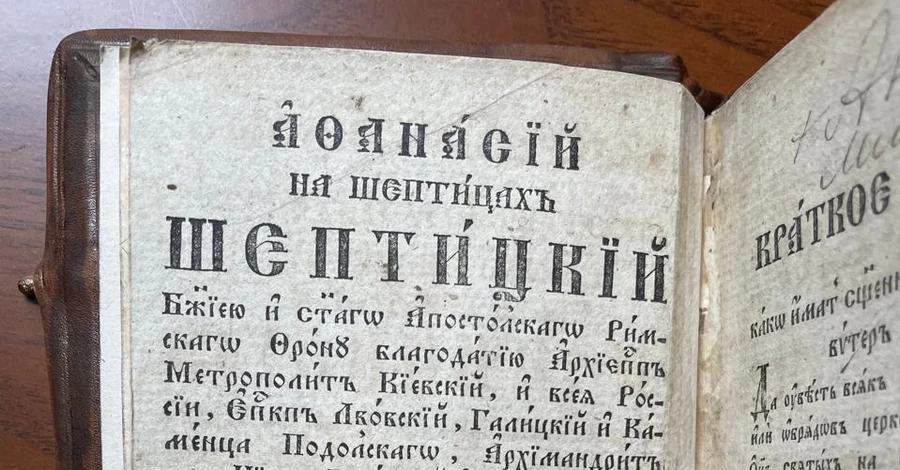 А҆ѲАНА́СЇЙ
НА ШЕПТИ́ЦАХЪ
ШЕПТИ́ЦКЇЙ
Бж҃їею и҆ ст҃а́гѡ А҆посто́лскагѡ Ри́м-
скагѡ Ѳро́нꙋ благода́тїю А҆рхїеп҃пъ
Метрополи́тъ Кїе́вскїй, и҆ всеѧ̀ Ро́с-
сїи, Е҆п҃кпъ Лво́вскїй, Га́лицкїй и҆ Ка́-
ме́нца Подо́лскагѡ, А҆рхїмандри́тъ
КРА́ТКОЕ
ка́кѡ и҆́мат
вꙋ́теръ
Да ѹ҆вѣ́сть всѧ́къ
и҆лѝ ѡ҆брѧ́дѡвъ
святы́хъ на